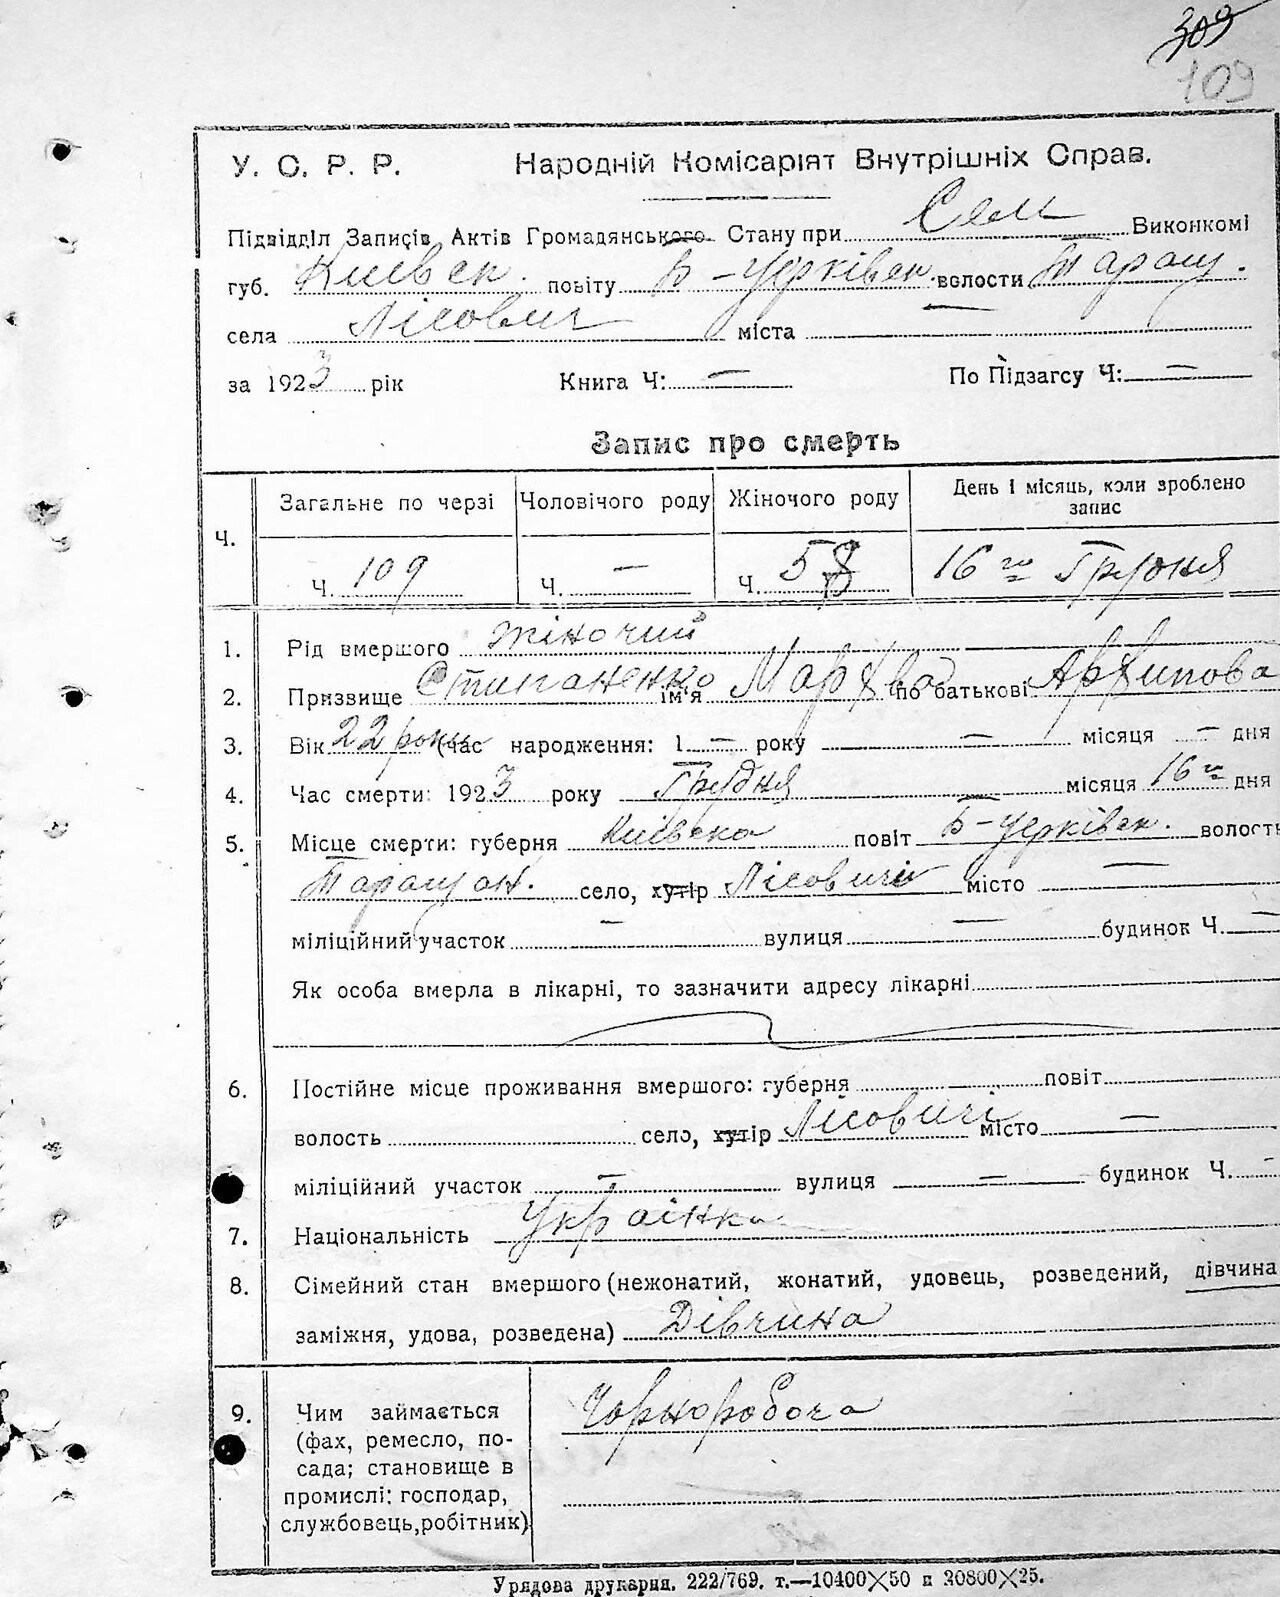 309
109
У. С. Р. Р. Народній Комісаріят Внутрішніх Справ.
Підвідділ Записів Актів Громадянського Стану при Сель Виконкомі
губ. Київськ. повіту Б-Церківськ. волости Таращ.
села Лісович міста
за 1923 рік Книга Ч: — По Підзагсу Ч: —
Запис про смерть
Ч. Загальне по черзі Чоловічого роду Жіночого роду День і місяць, коли зроблено запис
Ч. 109 Ч. — Ч. 58 16го Грудня
1. Рід вмершого Жіночий
2. Призвище Стипаненко ім'я по батькові Архипова
3. Вік 22 роки (час народження: 1 — року — місяця — дня
4. Час смерти: 1923 року Грудня місяця 16го дня
5. Місце смерти: губерня Київська повіт Б-Церківськ. волость
Таращан. село, хутір Лісовичі місто —
міліційний участок — вулиця — будинок Ч. —
Як особа вмерла в лікарні, то зазначити адресу лікарні
6. Постійне місце проживання вмершого: губерня повіт
волость село, хутір Лісовичі місто —
міліційний участок — вулиця — будинок Ч. —
7. Національність Українка
8. Сімейний стан вмершого (нежонатий, жонатий, удовець, розведений, дівчина
заміжня, удова, розведена) Дівчина
9. Чим займається Чорноробоча
(фах, ремесло, по-
сада; становище в
промислі: господар,
службовець, робітник)
Урядова друкарня. 222/769. т.—10400X50 п 20800X25.